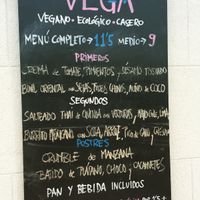 VEGA
VEGANO • ECOLÓGICO • CASERO
MENÚ COMPLETO → 11'5 MEDIO → 9
PRIMEROS
CREMA DE TOMATE, PIMIENTOS Y SÉSAMO TOSTADO
BOWL ORIENTAL CON SETAS, FIDEOS CHINOS, ALIÑO DE COCO
SEGUNDOS
SALTEADO THAI DE QUINOA CON VERDURAS,
BURRITO MEXICANO CON SOJA, ARROZ, PICO DE GALLO,
POSTRES
CRUMBLE DE MANZANA
BATIDO DE PLÁTANO, CHOCO Y CACAHUETES
PAN Y BEBIDA INCLUIDOS